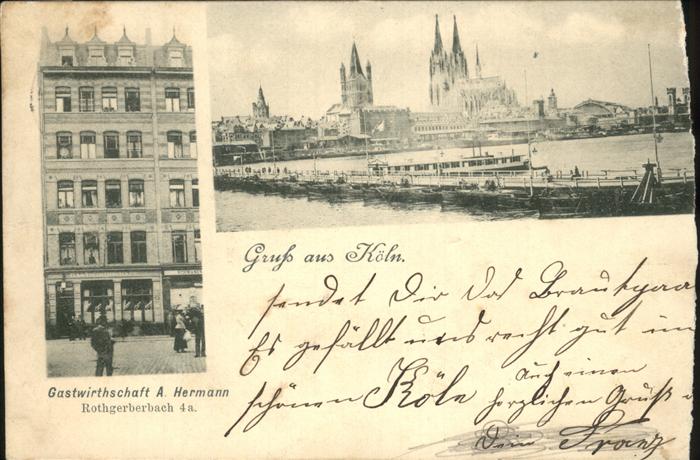 Gastwirthschaft A. Hermann
Rothgerberbach 4a.
Gruß aus Köln.
sendet Dir das Brautpaa
Es gefällt uns recht gut im
schönen Köln
Auch einen
herzlichen Gruß
Dein Franz